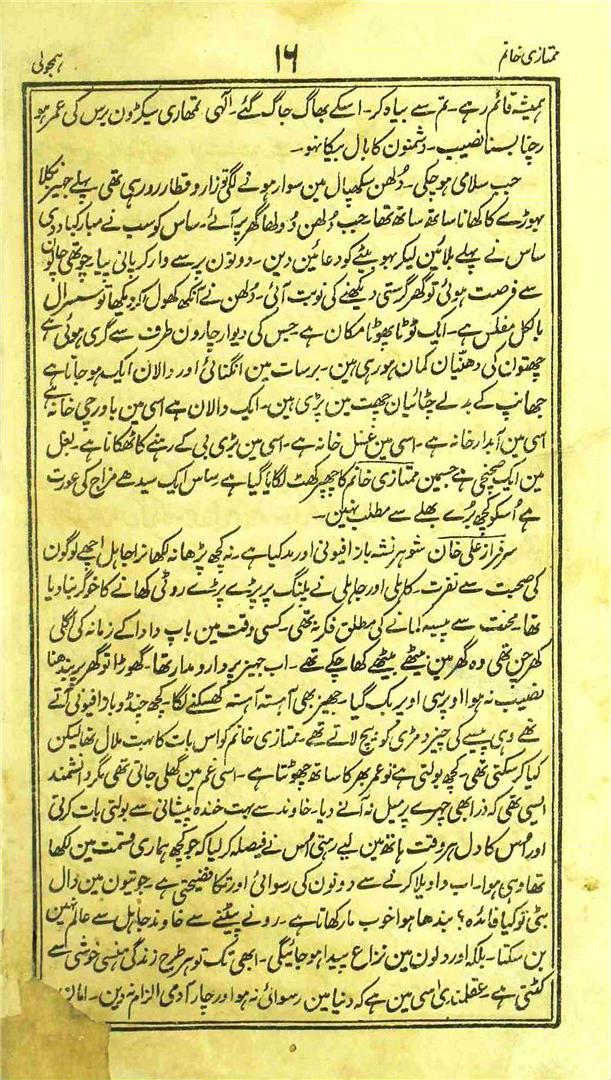 ممتازی خانم ۱۶ ہمجولی
ہمیشہ قائم رہے۔ تم سے بیاہ کر۔ اسکے بھاگ جاگ گئے۔ الٰہی تمھاری سیکڑون برس کی عمر ہو
رچنا بسنا نصیب۔ دشمنون کا بال بیکا نہو۔
جب سلامی ہو چکی۔ دُلھن سکھپال مین سوار ہونے لگی تو زار و قطار رو رہی تھی پہلے جہیز نکلا
بہوڑے کا کھانا ساتھ ساتھ تھا۔ جب دُلھن دُولھا گھر پر آئے۔ ساس کو سب نے مبارکباد دی
ساس نے پہلے بلائین لیکر بہو بیٹے کو دعائین دین۔ دونون پر سے وار کر پانی پیا چوتھی چالون
سے فرصت ہوئی تو گھر گرستی دیکھنے کی نوبت آئی۔ دلھن نے آنکھ کھول کر دیکھا تو سسرال
بالکل مفلس ہے۔ ایک ٹوٹا پھوٹا مکان ہے جس کی دیوار چارون طرف سے گری ہوئی ہے
چھتون کی دھنّیان کمان ہو رہی ہین۔ برسات مین انگنائی اور دالان ایک ہو جاتا ہے
جھانپ کے بدلے چٹائیان چھت مین پڑی ہین۔ ایک دالان ہے اسی مین باورچی خانہ ہے
اسی مین آبدار خانہ ہے۔ اسی مین غسل خانہ ہے۔ اسی مین بڑی بی کے رہنے کا ٹھکانا ہے۔ بغل
مین ایک صحنچی ہے جسمین ممتازی خانم کا چھپر کھٹ لگایا گیا ہے ساس ایک سیدھے مزاج کی عورت
ہے اُسکو کچھ بُرے بھلے سے مطلب نہین۔
سرفراز علی خان شوہر نشہ باز افیونی اور مدکیا ہے۔ نہ کچھ پڑھا نہ لکھا نرا جاہل اچھے لوگون
کی صحبت سے نفرت۔ کاہلی اور جاہلی نے پلنگ پر پڑے پڑے روٹی کھانے کا خوگر بنا دیا
تھا۔ محنت سے پیسہ کمانے کی مطلق فکر نہ تھی۔ کسی وقت مین باپ دادا کے زمانہ کی اگلی
کھرچن تھی وہ گھر مین بیٹھے بیٹھے کھا چکے تھے۔ اب جہیز پر دار و مدار تھا۔ گھوڑا تو گھر پر بندھنا
نصیب نہ ہوا اوپر ہی اوپر بک گیا۔ جہیز بھی آہستہ آہستہ کھسکنے لگا۔ کچھ چنڈو باز افیونی آتے
تھے وہی پیسے کی چیز دمڑی کو بیچ لاتے تھے۔ ممتازی خانم کو اس بات کا بہت ملال تھا لیکن
کیا کر سکتی تھی۔ کچھ بولتی ہے تو عمر بھر کا ساتھ چھوٹتا ہے۔ اسی غم مین گھلی جاتی تھی مگر دانشمند
ایسی تھی کہ ذرا بھی چہرے پر میل نہ آنے دیا۔ خاوند سے بہت خندہ پیشانی سے بولتی بات کرتی
اور اُس کا دل ہر وقت ہاتھ مین لیے رہتی اُس نے فیصلہ کر لیا کہ جو کچھ ہماری قسمت مین لکھا
تھا وہی ہوا۔ اب واویلا کرنے سے دونون کی رسوائی اور تکا فضیحتی ہے۔ جوتیون مین دال
بٹی تو کیا فائدہ؟ بندھا ہوا خوب مار کھاتا ہے۔ رونے پیٹنے سے خاوند جاہل سے عالم نہین
بن سکتا۔ بلکہ اور دلون مین نزاع پیدا ہو جائیگی۔ ابھی تک تو ہر طرح زندگی ہنسی خوشی سے
کٹتی ہے۔ عقلمندی اسی مین ہے کہ دنیا مین رسوائی نہ ہو اور چار آدمی الزام نہ دین۔ امان